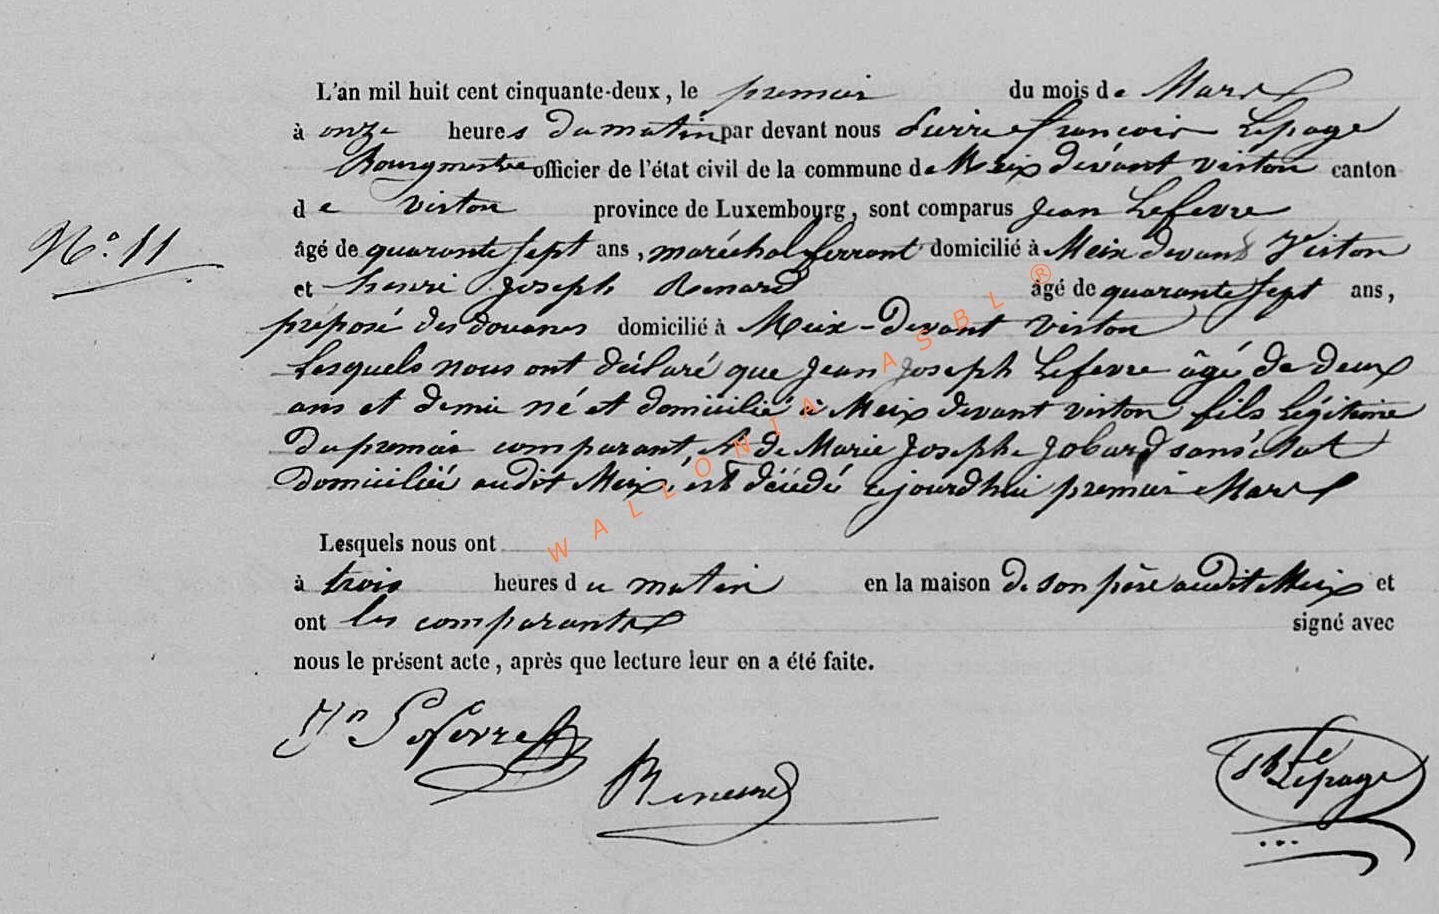 L'an mil huit cent cinquante-deux, le premier du mois de Mars
à onze heures du matin par devant nous Pierre françois Lepage
Bourgmestre officier de l'état civil de la commune de Meix devant virton canton
de virton province de Luxembourg, sont comparus Jean Lefevre
N° 11
âgé de quarante sept ans, maréchal ferrant domicilié à Meix devant Virton
et henri Joseph Renard âgé de quarante sept ans,
préposé des douanes domicilié à Meix-devant virton
Lesquels nous ont déclaré que Jean Joseph Lefevre âgé de deux
ans et demie né et domicilié à Meix devant virton fils légitime
du premier comparant, et de Marie Joseph Jobard sans état
domicilié audit Meix, est décédé cejourdhui premier Mars
Lesquels nous ont
à trois heures du matin en la maison de son père audit Meix et
ont les comparants signé avec
nous le présent acte, après que lecture leur en a été faite.
Jn Lefevre
Renard
Lepage
WALLONIA ASBL ®